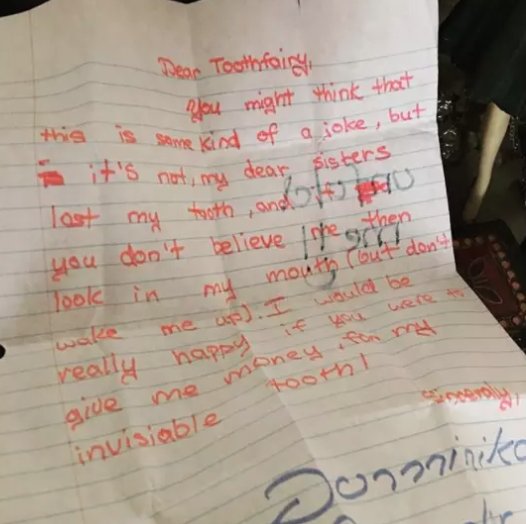 Dear Toothfairy,
you might think that
this is some kind of a joke, but
it's not, my dear sisters
lost my tooth, and if
you don't believe me then
look in my mouth (but don't
wake me up). I would be
really happy if you were to
give me money, for my
invisiable tooth!
sincerely,
Dominika